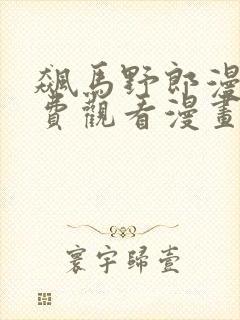 飆馬野郎漫
費觀看漫畫
寰宇歸壹